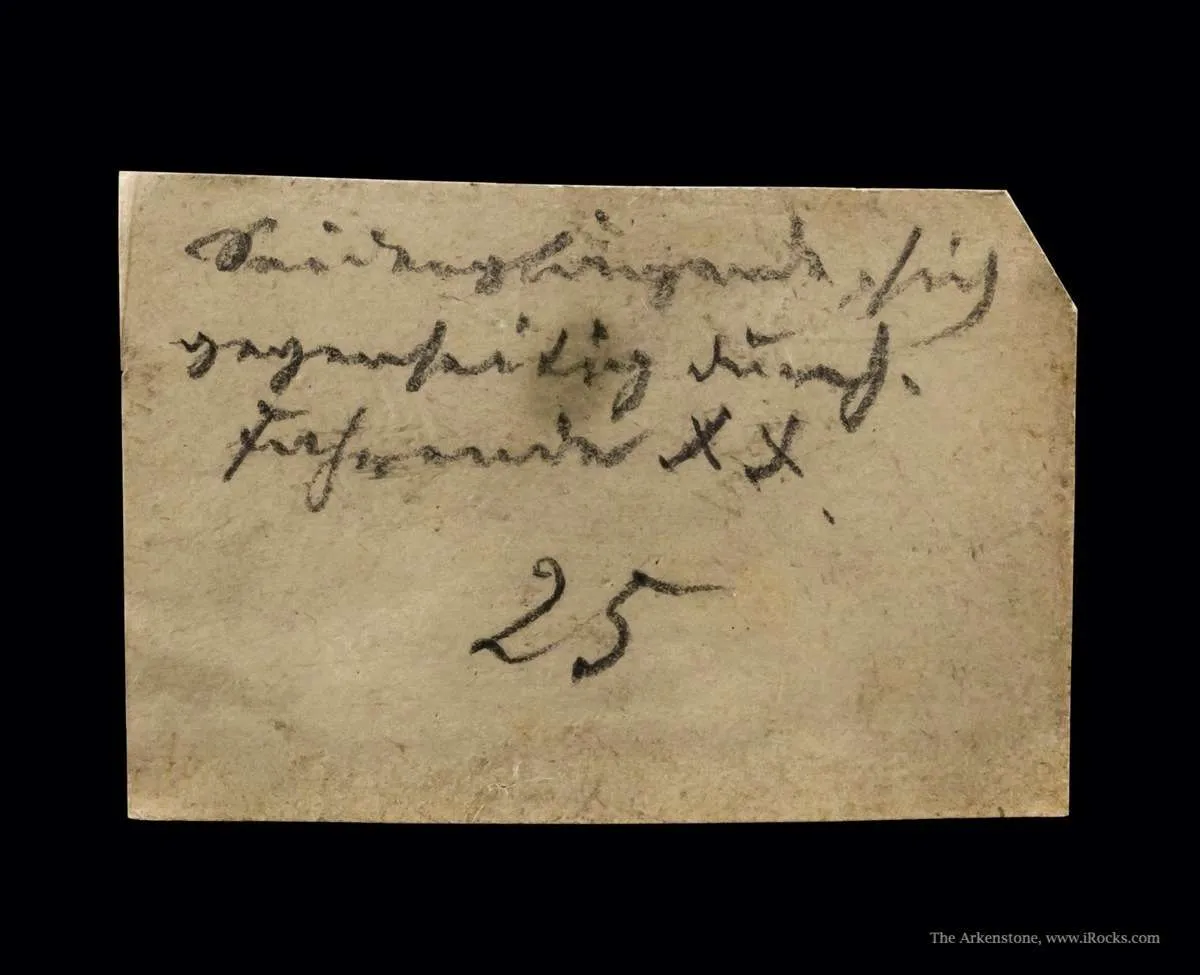 Seidenglänzende, sich
gegenseitig durch-
XX
25
The Arkenstone, www.iRocks.com